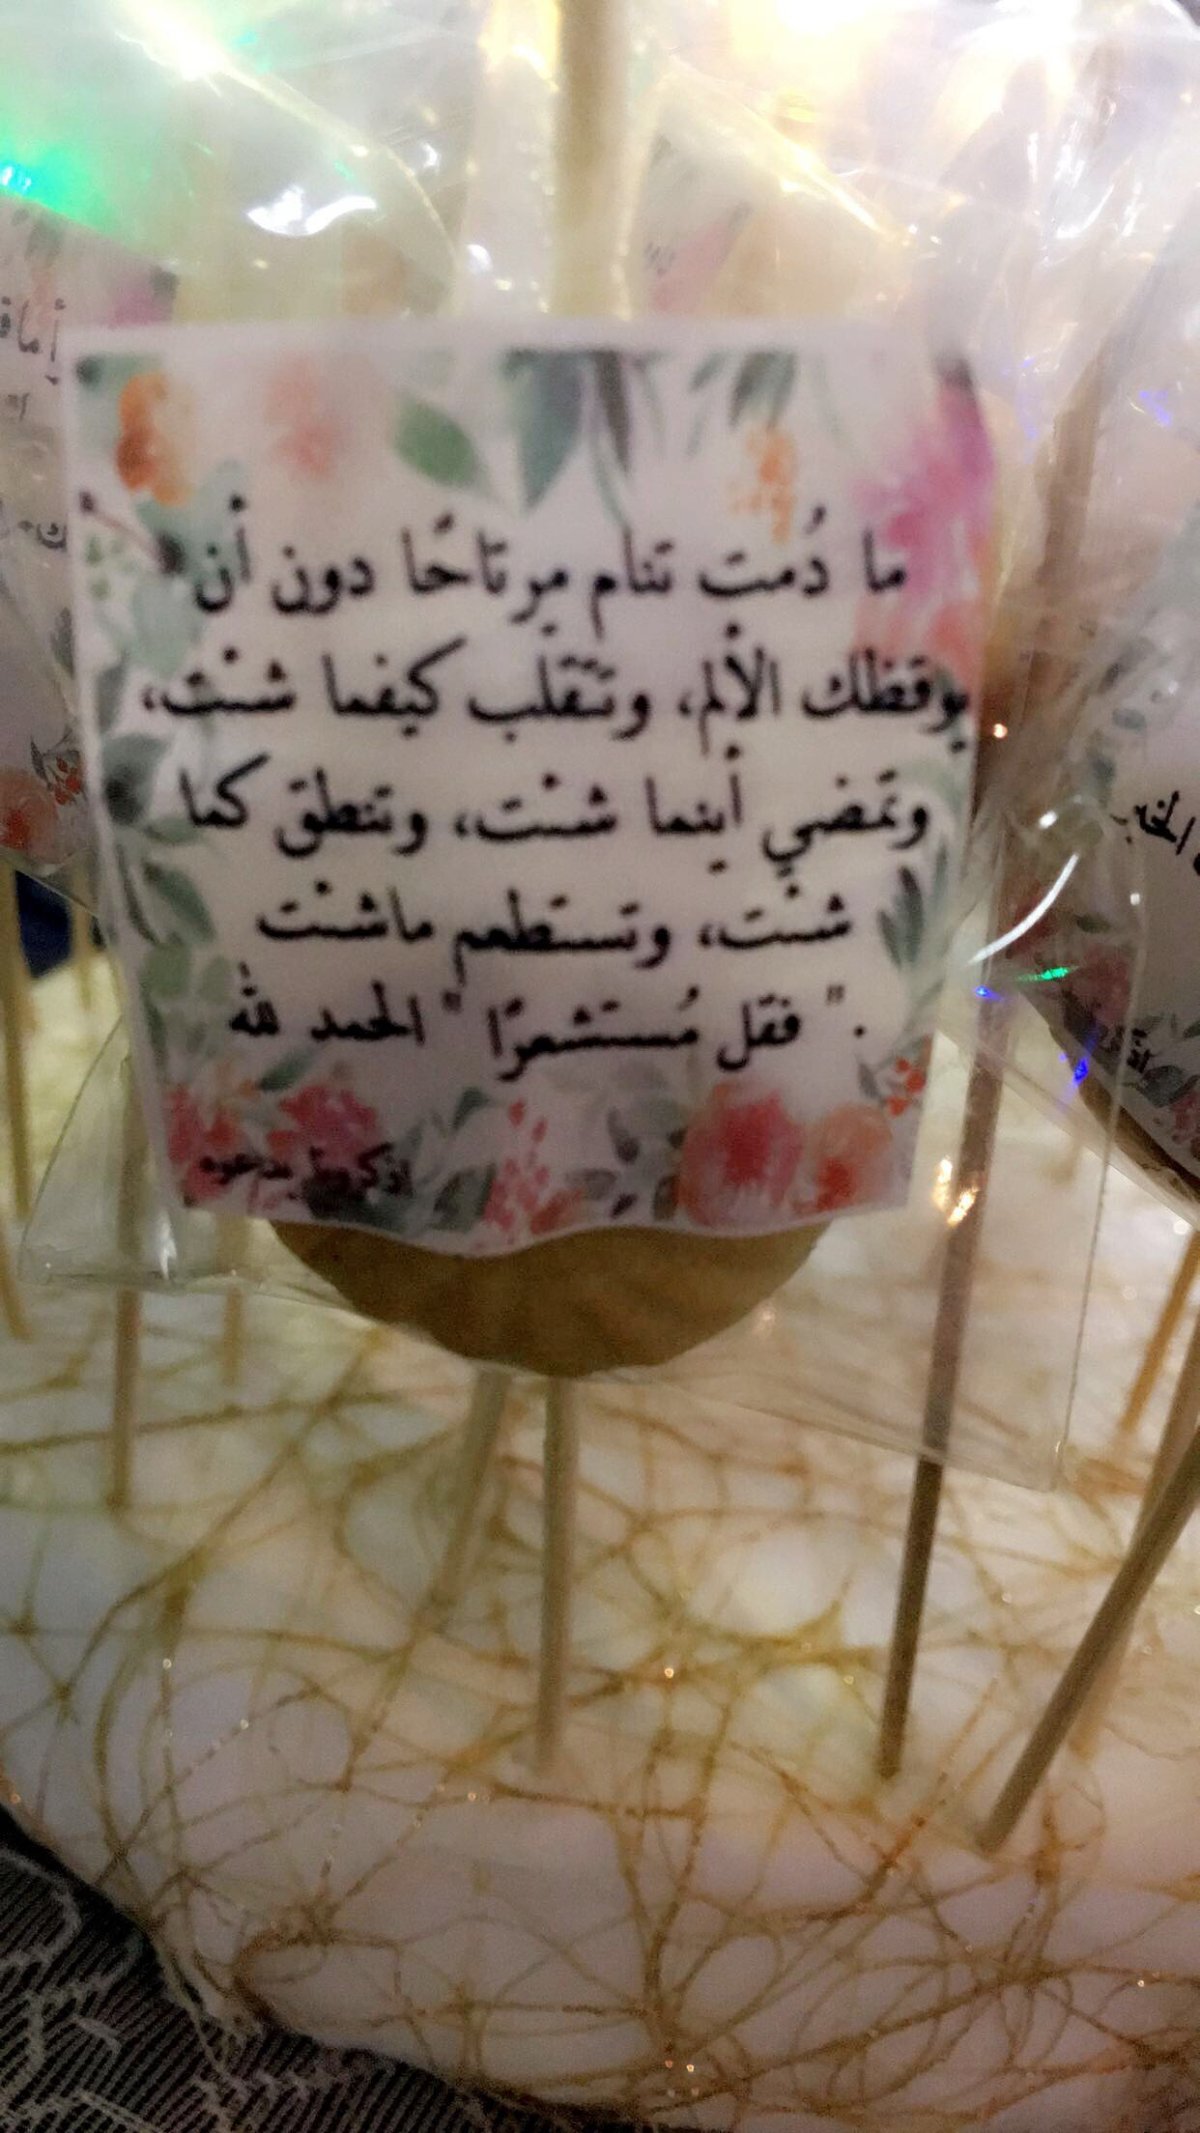 ما دُمت تنام مرتاحًا دون أن
يوقظك الألم، وتتقلب كيفما شئت،
وتمضي أينما شئت، وتنطلق كما
شئت، وتستطعم ماشئت
." فقل مُستشعرًا " الحمد لله